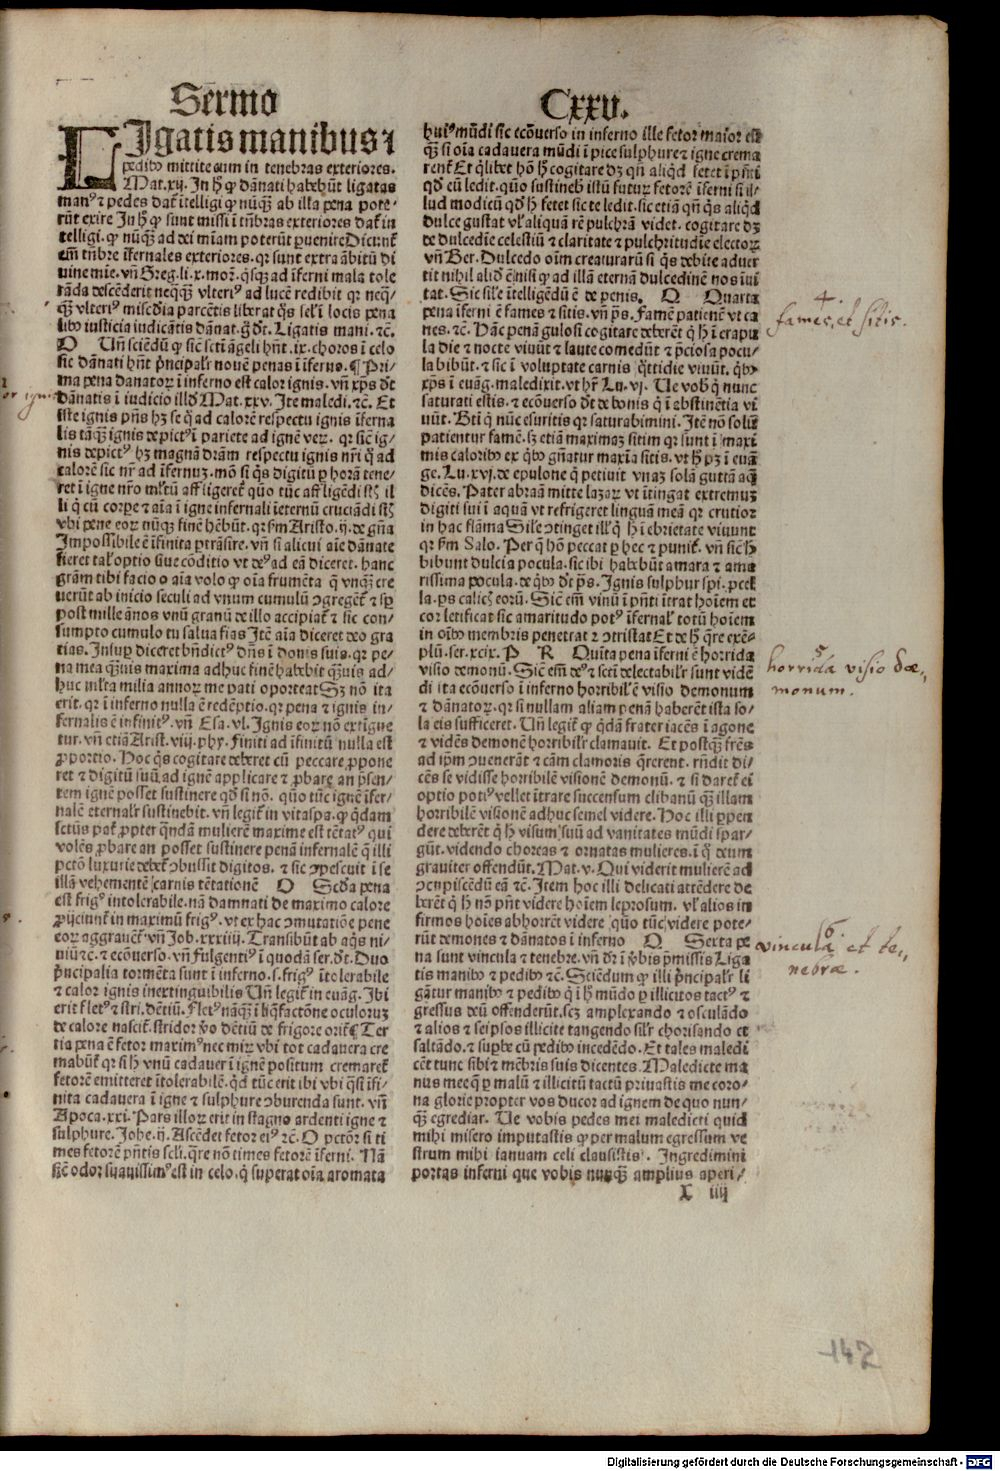 Sermo
Cxxv.
LIgatis manibus ⁊
pedibꝰ mittite eum in tenebras exteriores.
Mat.xij. In hͦ ꝙ dānati habebūt ligatas
manꝰ ⁊ pedes dat̄ ītelligi ꝙ nūqꝫ ab illa pena pote⸗
rūt exire In hͦ ꝙ sunt missi ī tn̄bras exteriores dat̄ in
telligi. ꝙ nūqꝫ ad dei mīam poterūt ꝑuenire Dicunt̄
em̄ tn̄bre īfernales exteriores. qr sunt extra ābitū di
uine mīe. vn̄ Greg. li. x. mor. qͥsqꝫ ad īferni mala tole
rāda descēderit neqͣqꝫ vlteriꝰ ad lucē redibit qr neqͣ⸗
qꝫ vlteriꝰ misc̄dia parcētis liberat qͦs sel̓ ī locis pena
libꝰ iusticia iudicātis dānat. g̊ dt̄. Ligatis mani. ⁊c.
O Un̄ sciēdū ꝙ sic̄ sctī āgeli hn̄t. ix. choros ī celo
sic dānati hn̄t pͥncipalr̄ nouē penas ī īferno. ¶ Pri⸗
ma pena danatoꝝ ī inferno est calor ignis. vn̄ xp̄s dt̄
dānatis ī iudicio illd̄ Mat. xxv. Ite maledi. ⁊c. Et
iste ignis pn̄s hꝫ se qͦ ad calorē respectu ignis īferna
lis tāqꝫ ignis depictꝰ ī pariete ad ignē veꝝ. qr sic̄ ig⸗
nis depictꝰ hꝫ magnā dr̄am respectu ignis nr̄i qͦ ad
calorē sic nr̄ ad īfernuꝫ. mō si qͥs digitū ꝑ horā tene⸗
ret ī igne nr̄o ml̓tū affligeret̄ quo tūc affligēdi st̄ il
li qͥ cū corpe ⁊ aīa ī igne infernali īeternū cruciādi st̄
vbi pene eoꝝ nūqꝫ finē hēbūt. qr ẜm Aristo. ij. de gn̄a
Impossibile ē īfinita ꝑtrāsire. vn̄ si alicui aīe dānate
fieret tal̓ optio siue cōditio vt deꝰ ad eā diceret. hanc
grām tibi facio o aīa volo ꝙ oīa frumēta q̄ vnqꝫ cre
uerūt ab inicio seculi ad vnum cumulū ꝯgregēt̄ ⁊ sꝑ
post mille ānos vnū granū de illo accipiat̄ ⁊ sic con⸗
sumpto cumulo tu salua fias Itē aīa diceret deo gra
tias. Insuꝑ diceret bn̄dictꝰ dn̄s ī donis suis. qr pe⸗
na mea qͣꝫuis maxima adhuc finē habebit qͣꝫuis ad⸗
huc ml̓ta milia annoꝝ me pati oporteat Sꝫ nō ita
erit. qr ī inferno nulla ē redēptio. qr pena ⁊ ignis in⸗
fernalis ē infinitꝰ. vn̄ Esa. vl. Ignis eoꝝ nō extīgue
tur. vn̄ etiā Arist. viij. phy. Finiti ad īfinitū nulla est
ꝓportio. Hoc qͥs cogitare deberet cū peccare ꝓpone
ret ⁊ digitū suū ad ignē applicare ⁊ ꝓbare an pn̄sen⸗
tem ignē posset sustinere qd̄ si nō. quō tūc ignē īfer⸗
nalē eternalr̄ sustinebit. vn̄ legit̄ in vitaspa. ꝙ qͥdam
sctūs pat̄ ꝓpter quādā mulierē maxime est tētatꝰ qui
volēs ꝓbare an posset sustinere penā infernalē q̄ illi
pctō luxurie debet̄ ꝯbussit digitos. ⁊ sic ꝯpescuit ī se
illā vehementē carnis tētationē O Scd̄a pena
est frigꝰ intolerabile. nā damnati de maximo calore
ꝓijciunt̄ in maximū frigꝰ. vt ex hac ꝯmutatiōe pene
eoꝝ aggrauēt̄ vn̄ Job. xxxiiij. Transibūt ab aqͥs ni⸗
uiū ⁊c. ⁊ ecōuerso. vn̄ fulgentiꝰ ī quodā ser. dt̄. Duo
pͥncipalia tormēta sunt ī inferno. s. frigꝰ ītolerabile
⁊ calor ignis inextinguibilis Un̄ legit̄ in euāg. Ibi
erit fletꝰ ⁊ stri. dētiū. Fletꝰ nāqꝫ ī liqͥfactōne oculoruꝫ
de calore nascit̄. stridor v̊o dētiū de frigore orit̄ ¶ Ter
tia pena ē fetor maximꝰ nec miꝝ vbi tot cadauera cre
mabūt̄ qr si hͦ vnū cadauer ī ignē positum cremaret̄
fetorē emitteret ītolerabilē. qͥd tūc erit ibi vbi qͣsi īfi⸗
nita cadauera ī igne ⁊ sulphure ꝯburenda sunt. vn̄
Apoca. xxi. Pars illoꝝ erit in stagno ardenti igne ⁊
sulphure. Johe. ij. Ascēdet fetor eiꝰ ⁊c. O pctōr si ti
mes fetorē pn̄tis scl̓i. qͣre nō times fetorē īferni. Nā
sic̄ odor suauissimꝰ est in celo. qͥ superat oīa aromata
huiꝰ mūdi sic ecōuerso in inferno ille fetor maior est
qꝫ si oīa cadauera mūdi ī pice sulphure ⁊ igne crema
rent̄ Et qͥlibet hō hͦ cogitare dꝫ qn̄ aliqͥd fetet ī pn̄ti
qd̄ eū ledit. quō sustineb̄ istū futuꝝ fetorē īferni si il⸗
lud modicū qd̄ hͦ fetet sic te ledit. sic etiā qn̄ qͥs aliqͥd
dulce gustat vl̓ aliquā rē pulchrā videt. cogitare dꝫ
de dulcedīe celestiū ⁊ claritate ⁊ pulchritudīe electoꝝ
vn̄ Ber. Dulcedo oīm creaturarū si qͥs debite aduer
tit nihil alid̓ ē nisi ꝙ ad illā eternā dulcedinē nos īui
tat. Sic sil̓e ītelligēdū ē de penis. O Quarta
pena īferni ē fames ⁊ sitis. vn̄ ps̄. Famē patient̄ vt ca
nes. ⁊c. Hāc penā gulosi cogitare deberēt qͥ hͦ ī crapu
la die ⁊ nocte viuūt ⁊ laute comedūt ⁊ p̄ciosa pocu⸗
la bibūt. ⁊ sic ī voluptate carnis qͦttidie viuūt. qͥbꝰ
xp̄s ī euāg. maledixit. vt hr̄ Lu. vj. Ue vob̄ qͥ nunc
saturati estis. ⁊ ecōuerso dt̄ de bonis qͥ ī abstinētia vi
uūt. Bti̓ qͥ nūc esuritis qr saturabimini. Itē nō solū
patientur famē. sꝫ etiā maximaꝫ sitim qr sunt ī maxi
mis caloribꝰ ex qͥbꝰ gn̄atur maxīa sitis. vt hͦ pꝫ ī euā
ge. Lu. xvj. de epulone qͥ petiuit vnaꝫ solā guttā aq̄
dicēs. Pater abraā mitte lazaꝝ vt ītingat extremuꝫ
digiti sui ī aquā vt refrigeret linguā meā qr crucior
in hac flāma Sil̓e ꝯtinget ill̓ qͥ hͦ ī ebrietate viuunt
qr ẜm Salo. Per q̄ hō peccat ꝑ hec ⁊ punit̄. vn̄ sic̄ hͦ
bibunt dulcia pocula. sic ibi habebūt amara ⁊ ama
rissima pocula. de qͥbꝰ dt̄ ps̄. Ignis sulphur spi. pcel
la. ps calicꝭ eorū. Sic̄ em̄ vinū ī pn̄ti ītrat hoīem et
cor letificat sic amaritudo potꝰ īfernal̓ totū hoīem
in oībꝰ membris penetrat ⁊ ꝯtristat Et de hͦ qͣre exē⸗
plū. ser. xcix. P R Quīta pena īferni ē horrida
visio demonū. Sic̄ em̄ deꝰ ⁊ scti̓ delectabilr̄ sunt vidē
di ita ecōuerso ī inferno horribil̓ ē visio demonum
⁊ dānatoꝝ. qr si nullam aliam penā haberēt ista so⸗
la eis sufficeret. Un̄ legit̄ ꝙ qͥdā frater iacēs ī agone
⁊ vidēs demonē horribilr̄ clamauit. Et postqꝫ fr̄es
ad ip̄m ꝯuenerāt ⁊ cām clamoris qͥrerent. rn̄dit di⸗
cēs se vidisse horribilē visionē demonū. ⁊ si daret̄ ei
optio potiꝰ vellet ītrare succensum clibanū qꝫ illam
horribilē visionē adhuc semel videre. Hoc illi ꝑpen
dere deberēt qͥ hͦ visum suū ad vanitates mūdi spar⸗
gūt. videndo choreas ⁊ ornatas mulieres. ī qͦ deum
grauiter offendūt. Mat. v. Qui viderit mulierē ad
ꝯcupiscēdū eā ⁊c. Item hoc illi delicati attēdere de
berēt qͥ hͦ nō pn̄t videre hoīem leprosum. vl̓ alios in
firmos hoīes abhorrēt videre quō tūc videre pote⸗
rūt demones ⁊ dānatos ī inferno O Sexta pe
na sunt vincula ⁊ tenebre. vn̄ dr̄ ī v̓bis p̄missis Liga
tis manibꝰ ⁊ pedibꝰ ⁊c. Sciēdum ꝙ illi pͥncipalr̄ li
gātur manibꝰ ⁊ pedibꝰ qͥ ī hͦ mūdo ꝑ illicitos tactꝰ ⁊
gressus deū offenderūt. scꝫ amplexando ⁊ osculādo
⁊ alios ⁊ seipsos illicite tangendo silr̄ chorisando et
saltādo. ⁊ suꝑbe cū pedibꝰ incedēdo. Et tales maledi
cēt tunc sibi ⁊ mēbris suis dicentes. Maledicte ma
nus mee q̄ ꝑ malū ⁊ illicitū tactū priuastis me coro⸗
na glorie propter vos ducor ad ignem de quo nun⸗
qꝫ egrediar. Ue vobis pedes mei maledicti quid
mihi misero imputastis ꝙ per malum egressum ve
strum mihi ianuam celi clausistis. Ingredimini
portas inferni que vobis nunqꝫ amplius aperi⸗
X iiij
4
fames, et sitis.
5
horrida visio dæ⸗
monum.
6
vincula et te⸗
nebræ.
142
Digitalisierung gefördert durch die Deutsche Forschungsgemeinschaft - DFG